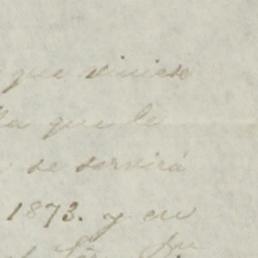 que viniese
la que le
se servirá
1873. y en